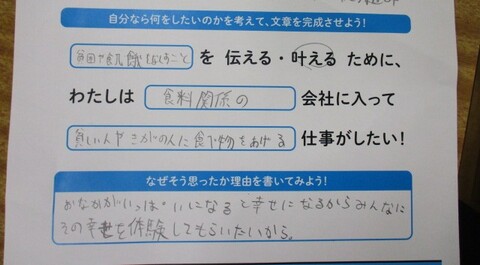 自分なら何をしたいのかを考えて、文章を完成させよう!
貧困や飢餓をなくすこと を 伝える・叶える ために、
わたしは 食料関係の 会社に入って
貧しい人やきがの人に食べ物をあげる 仕事がしたい!
なぜそう思ったか理由を書いてみよう!
おなかがいっぱいになると幸せになるからみんなに
その幸せを体験してもらいたいから。